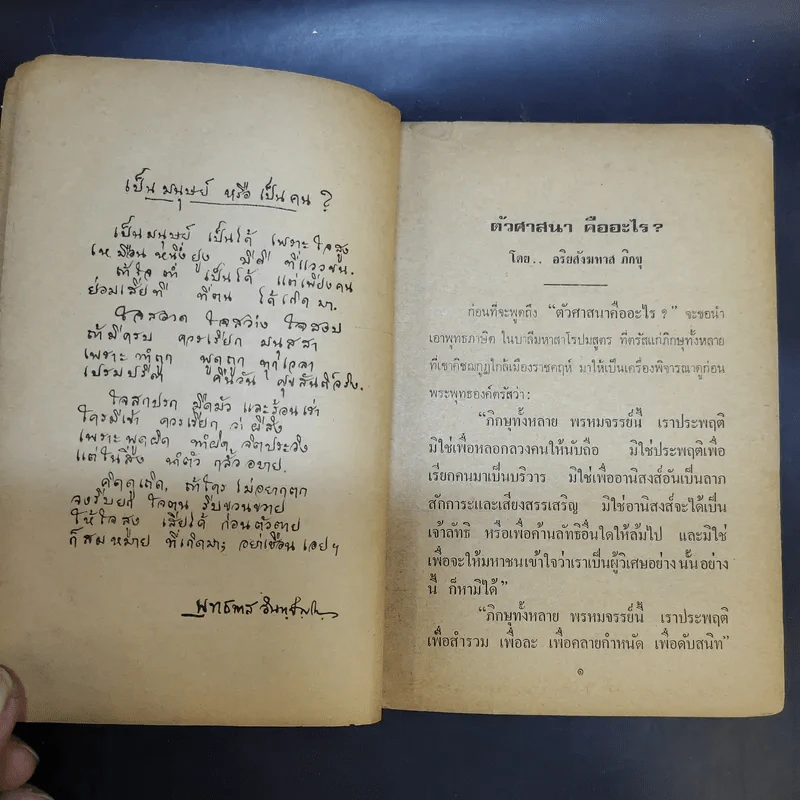 เป็นมนุษย์ หรือ เป็นคน ?
เป็นมนุษย์ เป็นได้ เพราะใจสูง
เหมือนหนึ่งยูง มีดี ที่แววขน.
ถ้าใจต่ำ เป็นได้ แต่เพียงคน
ย่อมเสียที ที่ตน ได้เกิดมา.
ใจสอาด ใจสว่าง ใจสงบ
ถ้ามีครบ ควรเรียก มนุสสา
เพราะทำถูก พูดถูก ทุกเวลา
เปรมปรีดา คืนวัน ศุขสันติ์จริง.
ใจสกปรก มืดมัว และร้อนเร่า
ใครมีเข้า ควรเรียก ว่าผีสิง
เพราะพูดผิด ทำผิด จิตประวิง
แต่ในสิ่ง ทำตัว กลั้วอบาย.
คิดดูเถิด, ถ้าใคร ไม่อยากตก
จงรีบยก ใจตน รีบขวนขวาย
ให้ใจสูง เสียได้ ก่อนตัวตาย
ก็สมหมาย ที่เกิดมา; อย่าเชือนเอยฯ
พุทธทาส อินทปัญโญ
ตัวศาสนา คืออะไร ?
โดย.. อริยสังฆทาส ภิกขุ
ก่อนที่จะพูดถึง “ตัวศาสนาคืออะไร ?” จะขอนำ
เอาพุทธภาษิต ในบาลีมหาสาโรปมสูตร ที่ตรัสแก่ภิกษุทั้งหลาย
ที่เขาคิชฌกูฏใกล้เมืองราชคฤห์ มาให้เป็นเครื่องพิจารณาดูก่อน
พระพุทธองค์ตรัสว่า:
“ภิกษุทั้งหลาย พรหมจรรย์นี้ เราประพฤติ
มิใช่เพื่อหลอกลวงคนให้นับถือ มิใช่ประพฤติเพื่อ
เรียกคนมาเป็นบริวาร มิใช่เพื่ออานิสงส์อันเป็นลาภ
สักการะและเสียงสรรเสริญ มิใช่อานิสงส์จะได้เป็น
เจ้าลัทธิ หรือเพื่อค้านลัทธิอื่นใดให้ล้มไป และมิใช่
เพื่อจะให้มหาชนเข้าใจว่าเราเป็นผู้วิเศษอย่างนั้นอย่าง
นี้ ก็หามิได้”
“ภิกษุทั้งหลาย พรหมจรรย์นี้ เราประพฤติ
เพื่อสำรวม เพื่อละ เพื่อคลายกำหนัด เพื่อดับสนิท”
๑